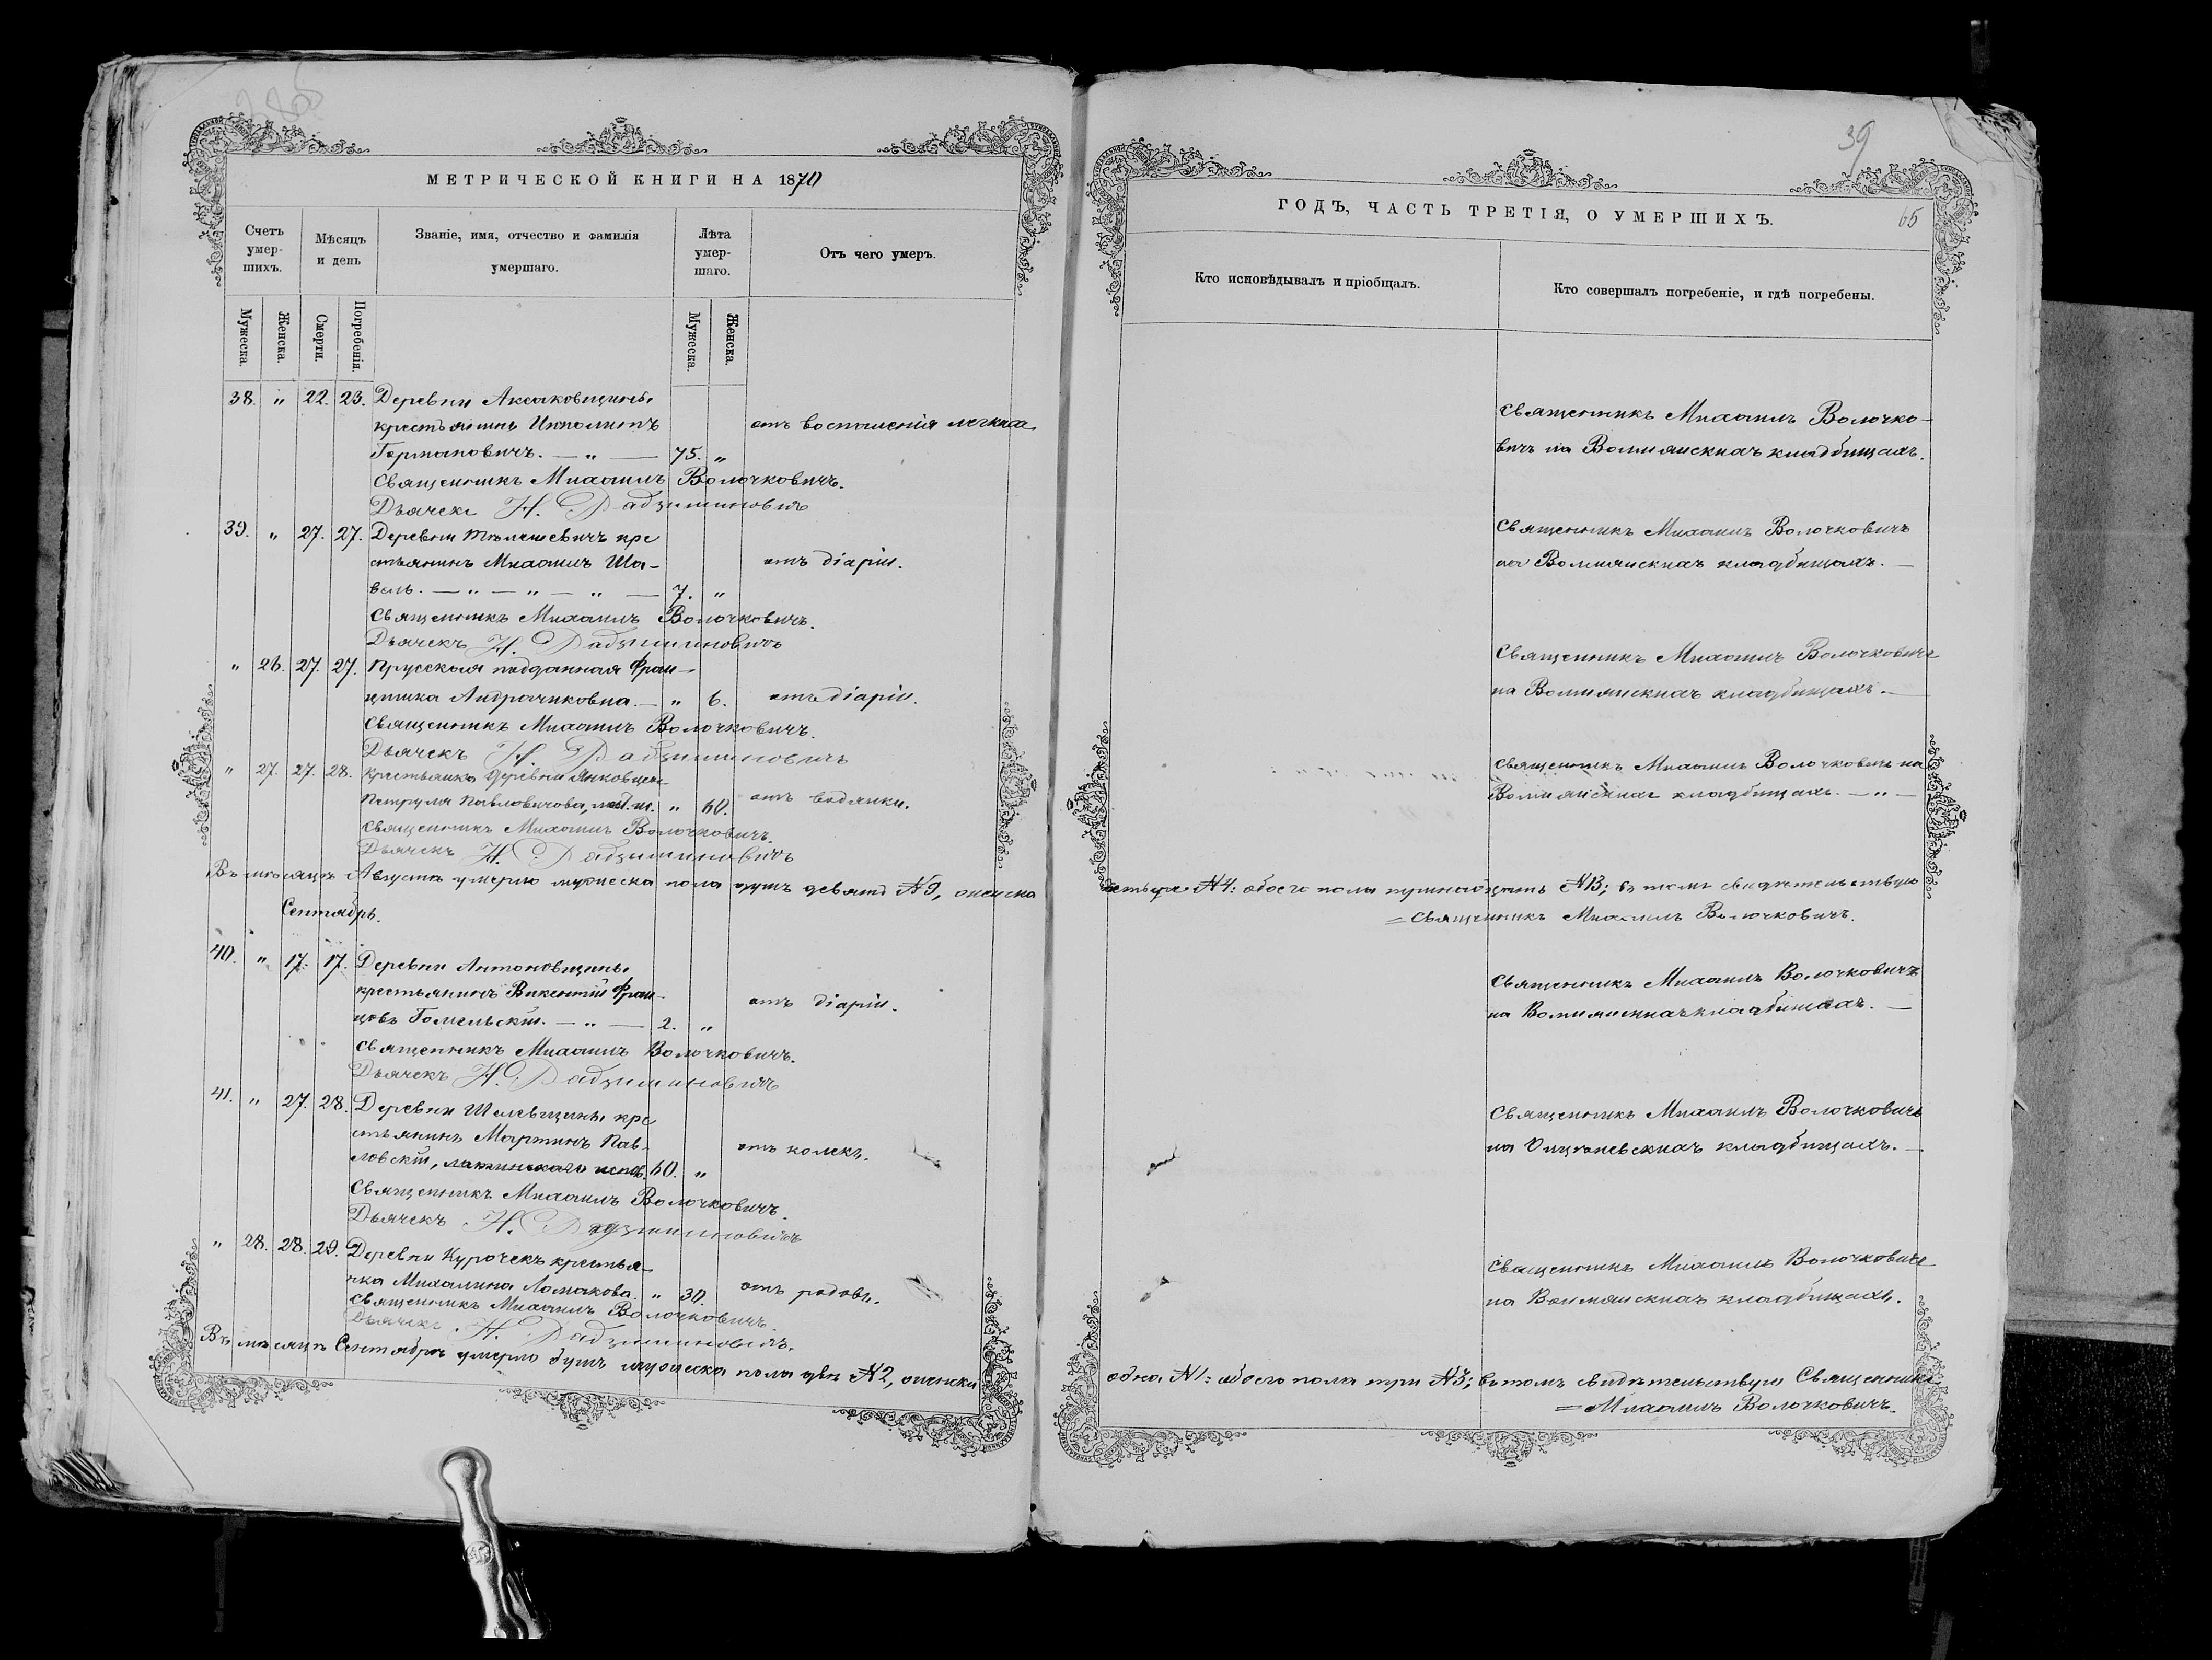 МЕТРИЧЕСКОЙ КНИГИ НА 1870
Счетъ умер-шихъ.
Мѣсяцъ и день
Званіе, имя, отчество и фамилія умершаго.
Лѣта умер-шаго.
Отъ чего умеръ.
Мужеска.
Женска.
Смерти.
Погребенія.
Мужеска.
Женска.
38. " 22. 23. Деревни Аксаковщины
крестьянинъ Ипполитъ отъ воспаленія легкихъ
Германовичъ. — " — 75. "
Священникъ Михаилъ Волочковичъ.
Дьячекъ Н.
39. " 27. 27. Деревни Тѣлешевичъ кре
стьянинъ Михаилъ Ша- отъ діаріи.
валь. — " — " — " — 7. "
Священникъ Михаилъ Волочковичъ.
Дьячекъ Н.
" 26. 27. 27. Прусская подданная Фран-
цишка — " 6. отъ діаріи.
Священникъ Михаилъ Волочковичъ.
Дьячекъ Н.
" 27. 27. 28. Крестьянка деревни
Павловичова, " 60. отъ водянки.
Священникъ Михаилъ Волочковичъ.
Дьячекъ Н.
Въ мѣсяцѣ Августѣ умерло мужеска пола душъ девять №9, женска
Сентябрь.
40. " 17. 17. Деревни Антоновщины
крестьянинъ Викентій Фран- отъ діаріи.
цовъ Гомельскій. — " — 2. "
Священникъ Михаилъ Волочковичъ.
Дьячекъ Н.
41. " 27. 28. Деревни кре
стьянинъ Мартинъ Пав- отъ
ловскій, латинскаго испов. 60. "
Священникъ Михаилъ Волочковичъ.
Дьячекъ Н.
" 28. 28. 29. Деревни Курочекъ крестья-
нка Михалина " 30. отъ родовъ.
Священникъ Михаилъ Волочковичъ.
Дьячекъ Н.
Въ мѣсяцѣ Сентябрѣ умерло душъ мужеска пола двѣ №2, женска
39
65
ГОДЪ, ЧАСТЬ ТРЕТІЯ, О УМЕРШИХЪ.
Кто исповѣдывалъ и пріобщалъ.
Кто совершалъ погребеніе, и гдѣ погребены.
Священникъ Михаилъ Волочко-
вичъ на Волмянскихъ кладбищахъ.
Священникъ Михаилъ Волочковичъ
на Волмянскихъ кладбищахъ. —
Священникъ Михаилъ Волочковичъ
на Волмянскихъ кладбищахъ. —
Священникъ Михаилъ Волочковичъ на
Волмянскихъ кладбищахъ. — " —
четыре №4: обоего пола тринадцать №13; въ томъ свидѣтельствую
= Священникъ Михаилъ Волочковичъ.
Священникъ Михаилъ Волочковичъ
на Волмянскихъ кладбищахъ. —
Священникъ Михаилъ Волочковичъ
на кладбищахъ. —
Священникъ Михаилъ Волочковичъ
на Волмянскихъ кладбищахъ.
одна №1: обоего пола три №3; въ томъ свидѣтельствую Священникъ
= Михаилъ Волочковичъ.